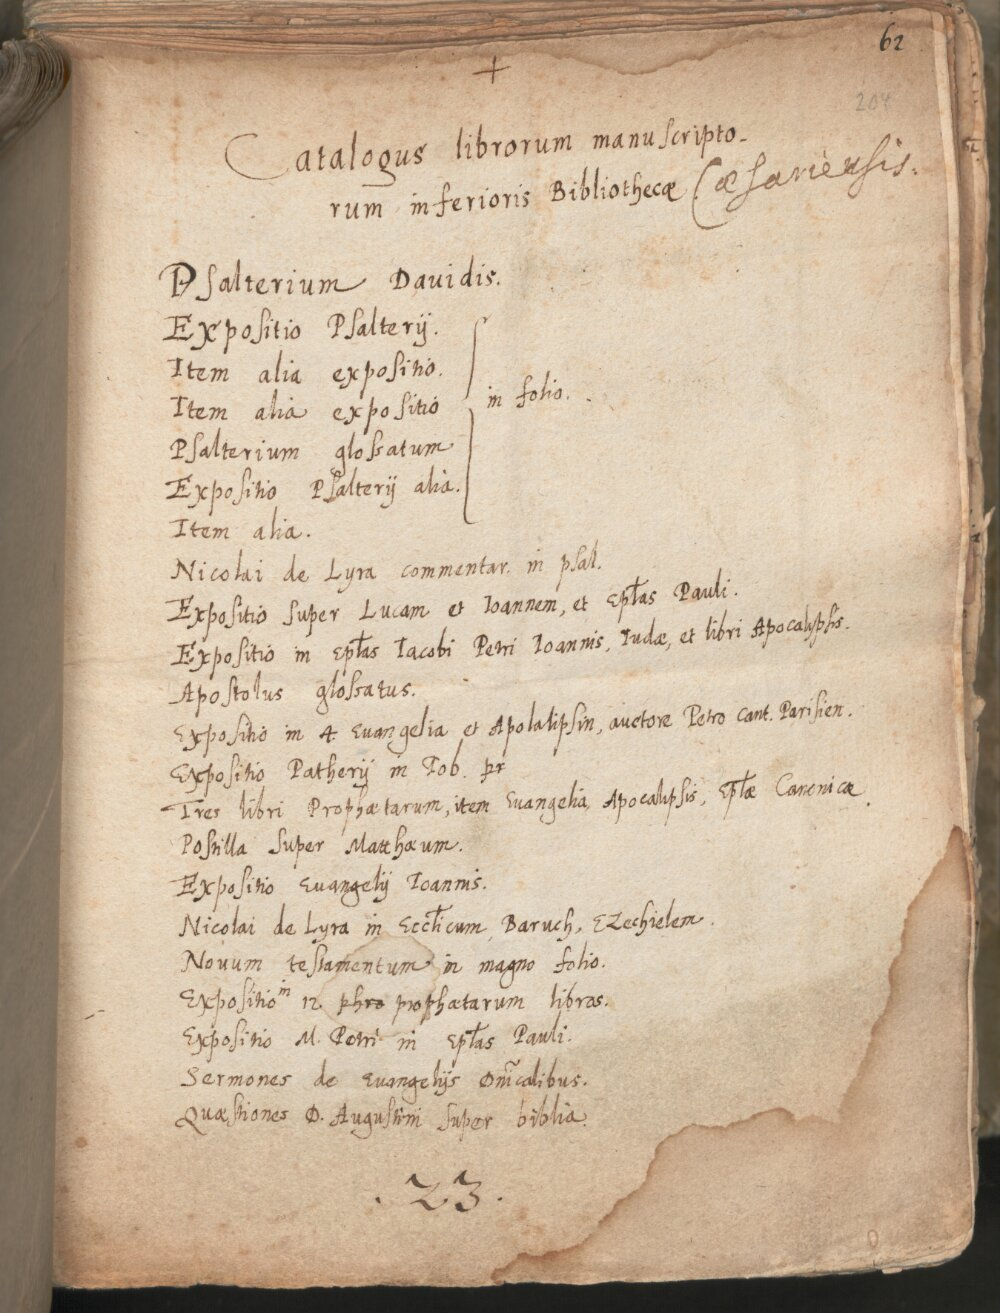 62
+
204
Catalogus librorum manuscripto-
rum inferioris Bibliothecæ Cæsariensis.
Psalterium Dauidis.
Expositio Psalterij.
Item alia expositio.
Item alia expositio
in folio.
Psalterium glossatum
Expositio Psalterij alia.
Item alia.
Nicolai de Lyra commentar. in psal.
Expositio super Lucam et Ioannem, et Epłas Pauli.
Expositio in Epłas Iacobi Petri Ioannis, Iudæ, et libri Apocalypsis.
Apostolus glossatus.
Expositio in 4 Euangelia et Apolalipsin, auctore Petro Cant. Parisien.
Expositio Patherij in Tob. pr
Tres libri Prophætarum, item Euangelia, Apocalipsis, Epłæ Canonicæ.
Postilla super Matthæum.
Expositio Euangelij Ioannis.
Nicolai de Lyra in Eccłicum, Baruch, Ezechielem.
Nouum testamentum in magno folio.
Expositio in 12 phro prophætarum libros.
Expositio M. Petri in Epłas Pauli.
Sermones de Euangelijs Dnĩcalibus.
Quæstiones D. Augustini super biblia.
.23.